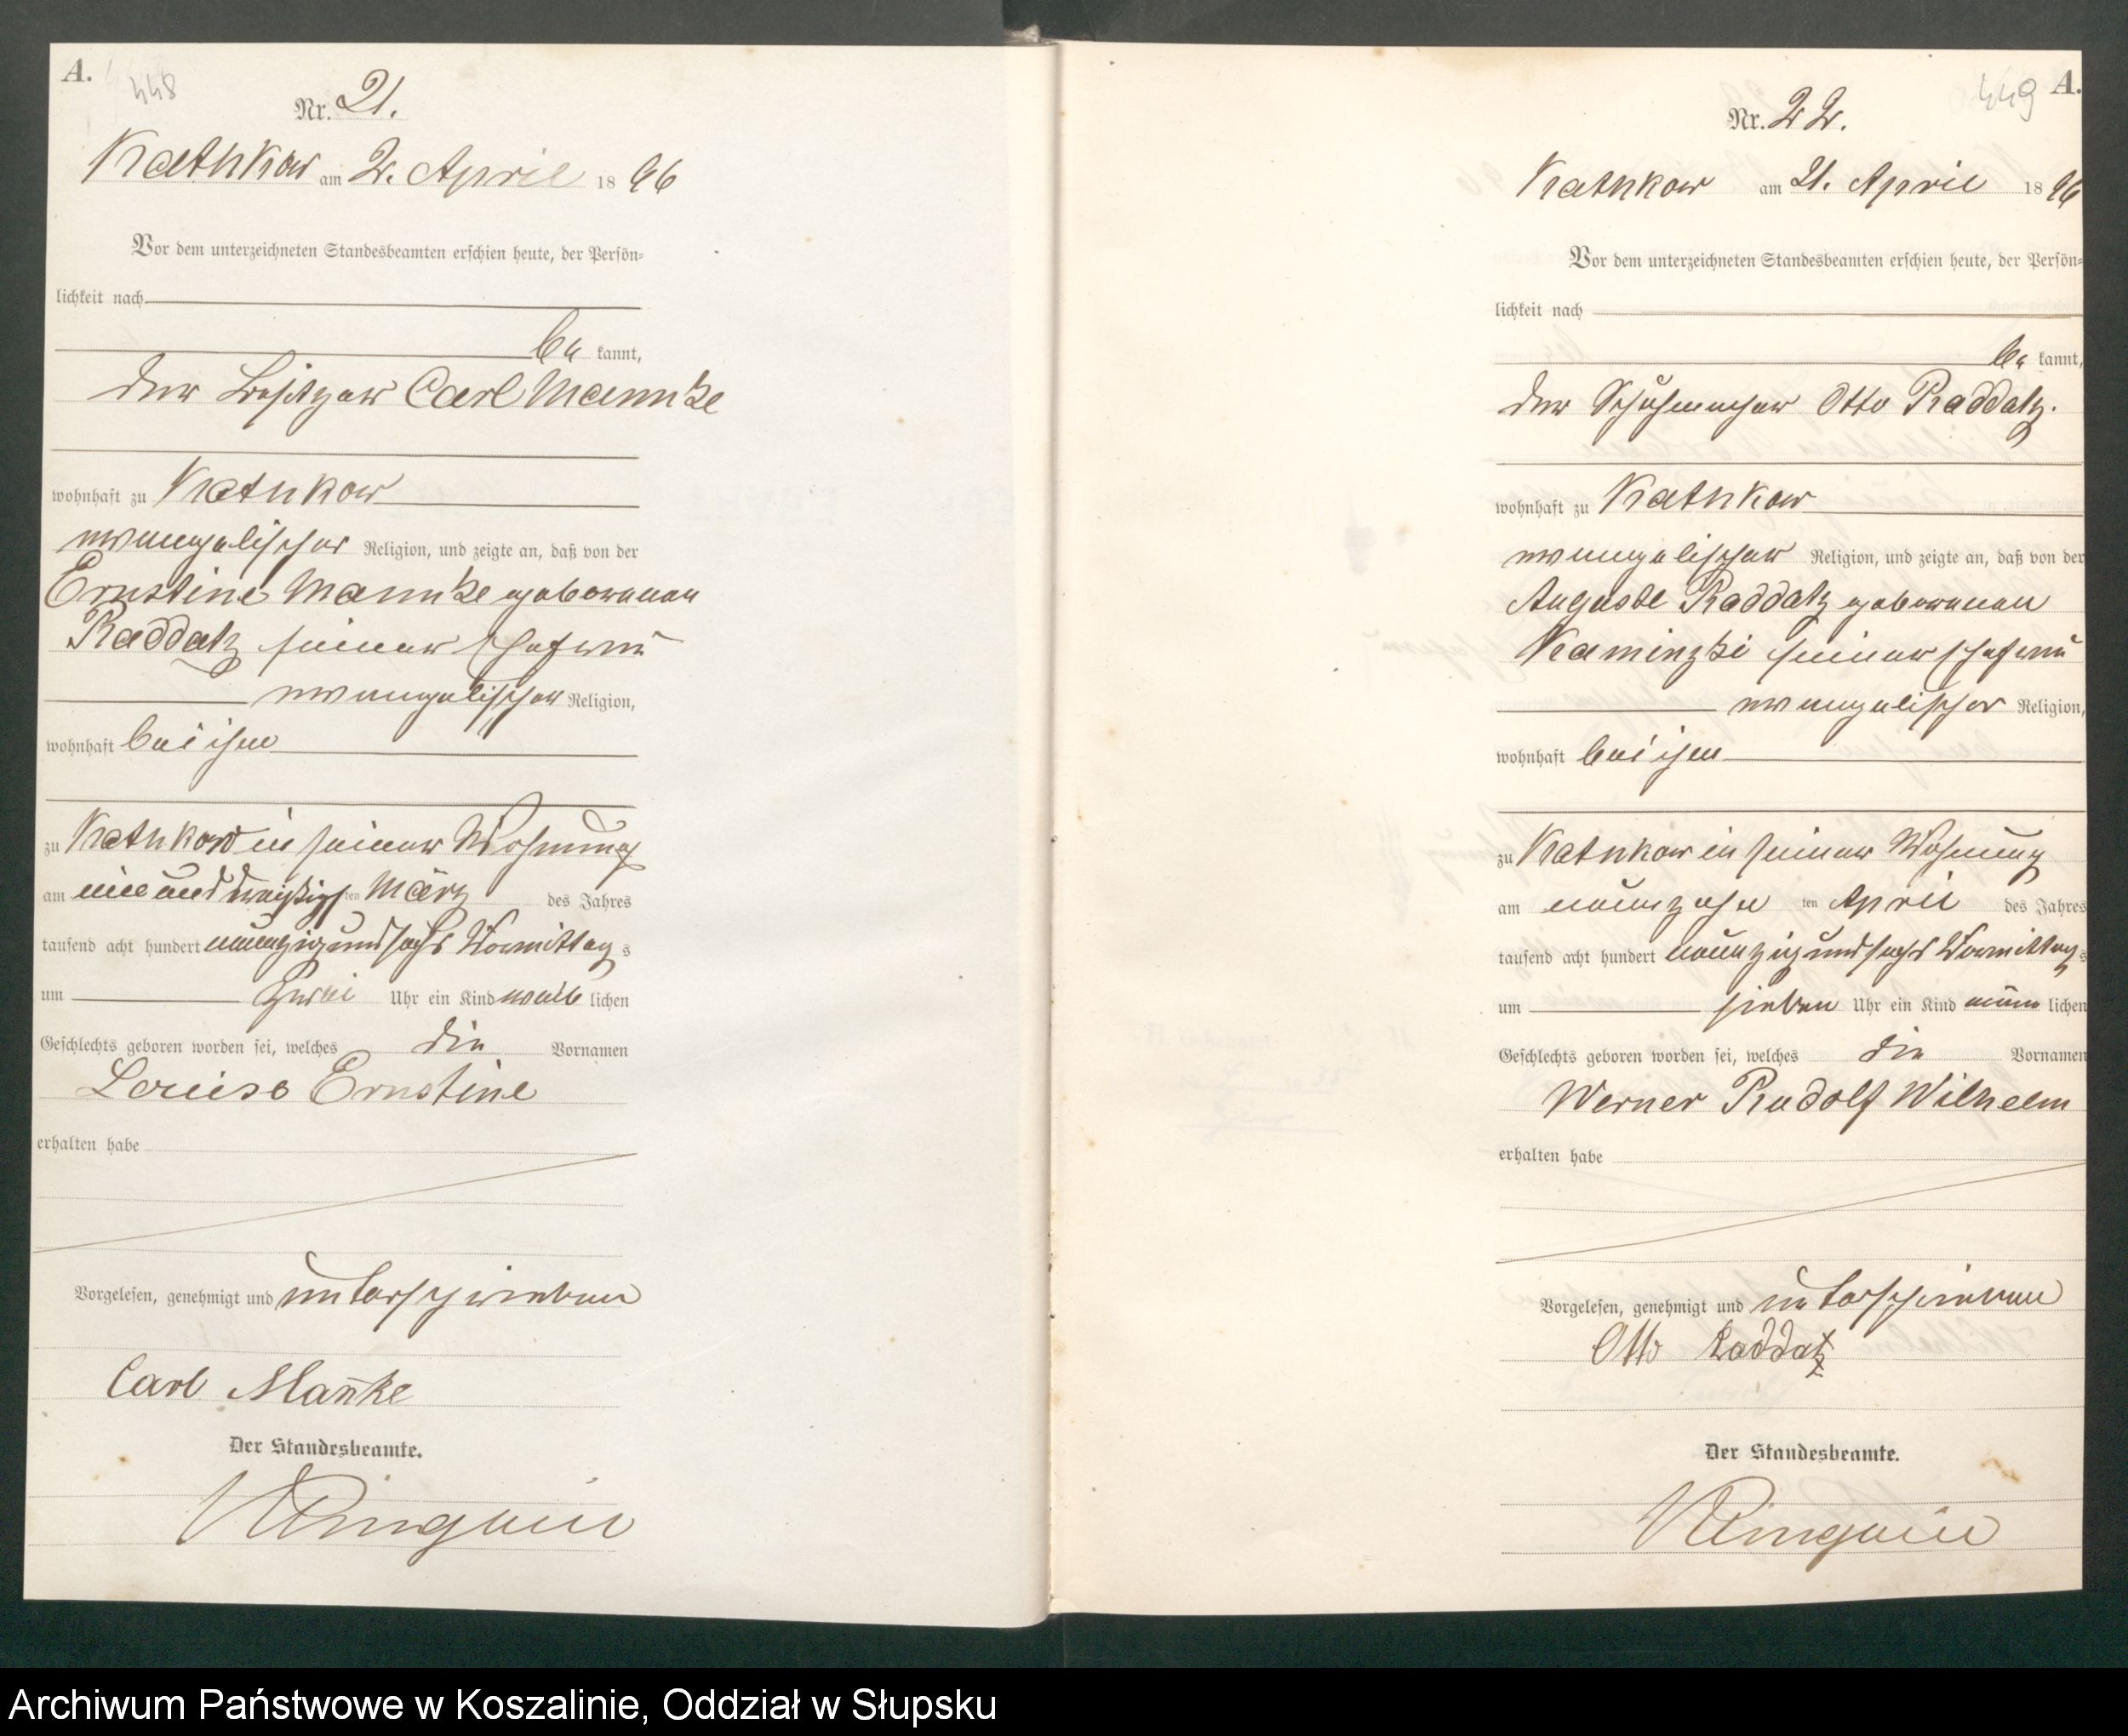 A.
448
Nr. 21.
Kathkow am 2. April 1896
Vor dem unterzeichneten Standesbeamten erschien heute, der Persön-
lichkeit nach
be kannt,
der Besitzer Carl Mannke
wohnhaft zu Kathkow
evangelischer Religion, und zeigte an, daß von der
Ernstine Mannke geborenen
Raddatz seiner Ehefrau
evangelischer Religion,
wohnhaft bei ihm
zu Kathkow in seiner Wohnung
am ein und dreißigsten März des Jahres
tausend acht hundert neunzig und sechs Vormittags
um zwei Uhr ein Kind weiblichen
Geschlechts geboren worden sei, welches die Vornamen
Louise Ernstine
erhalten habe
Vorgelesen, genehmigt und unterschrieben
Carl Mannke
Der Standesbeamte.
449 A.
Nr. 22.
Kathkow am 21. April 1896
Vor dem unterzeichneten Standesbeamten erschien heute, der Persön-
lichkeit nach
be kannt,
der Schuhmacher Otto Raddatz.
wohnhaft zu Kathkow
evangelischer Religion, und zeigte an, daß von der
Auguste Raddatz geborenen
Kaminzki seiner Ehefrau
evangelischer Religion,
wohnhaft bei ihm
zu Kathkow in seiner Wohnung
am neunzehn ten April des Jahres
tausend acht hundert neunzig und sechs Vormittags
um sieben Uhr ein Kind männlichen
Geschlechts geboren worden sei, welches die Vornamen
Werner Rudolf Wilhelm
erhalten habe
Vorgelesen, genehmigt und unterschrieben
Otto Raddatz
Der Standesbeamte.
Archiwum Państwowe w Koszalinie, Oddział w Słupsku